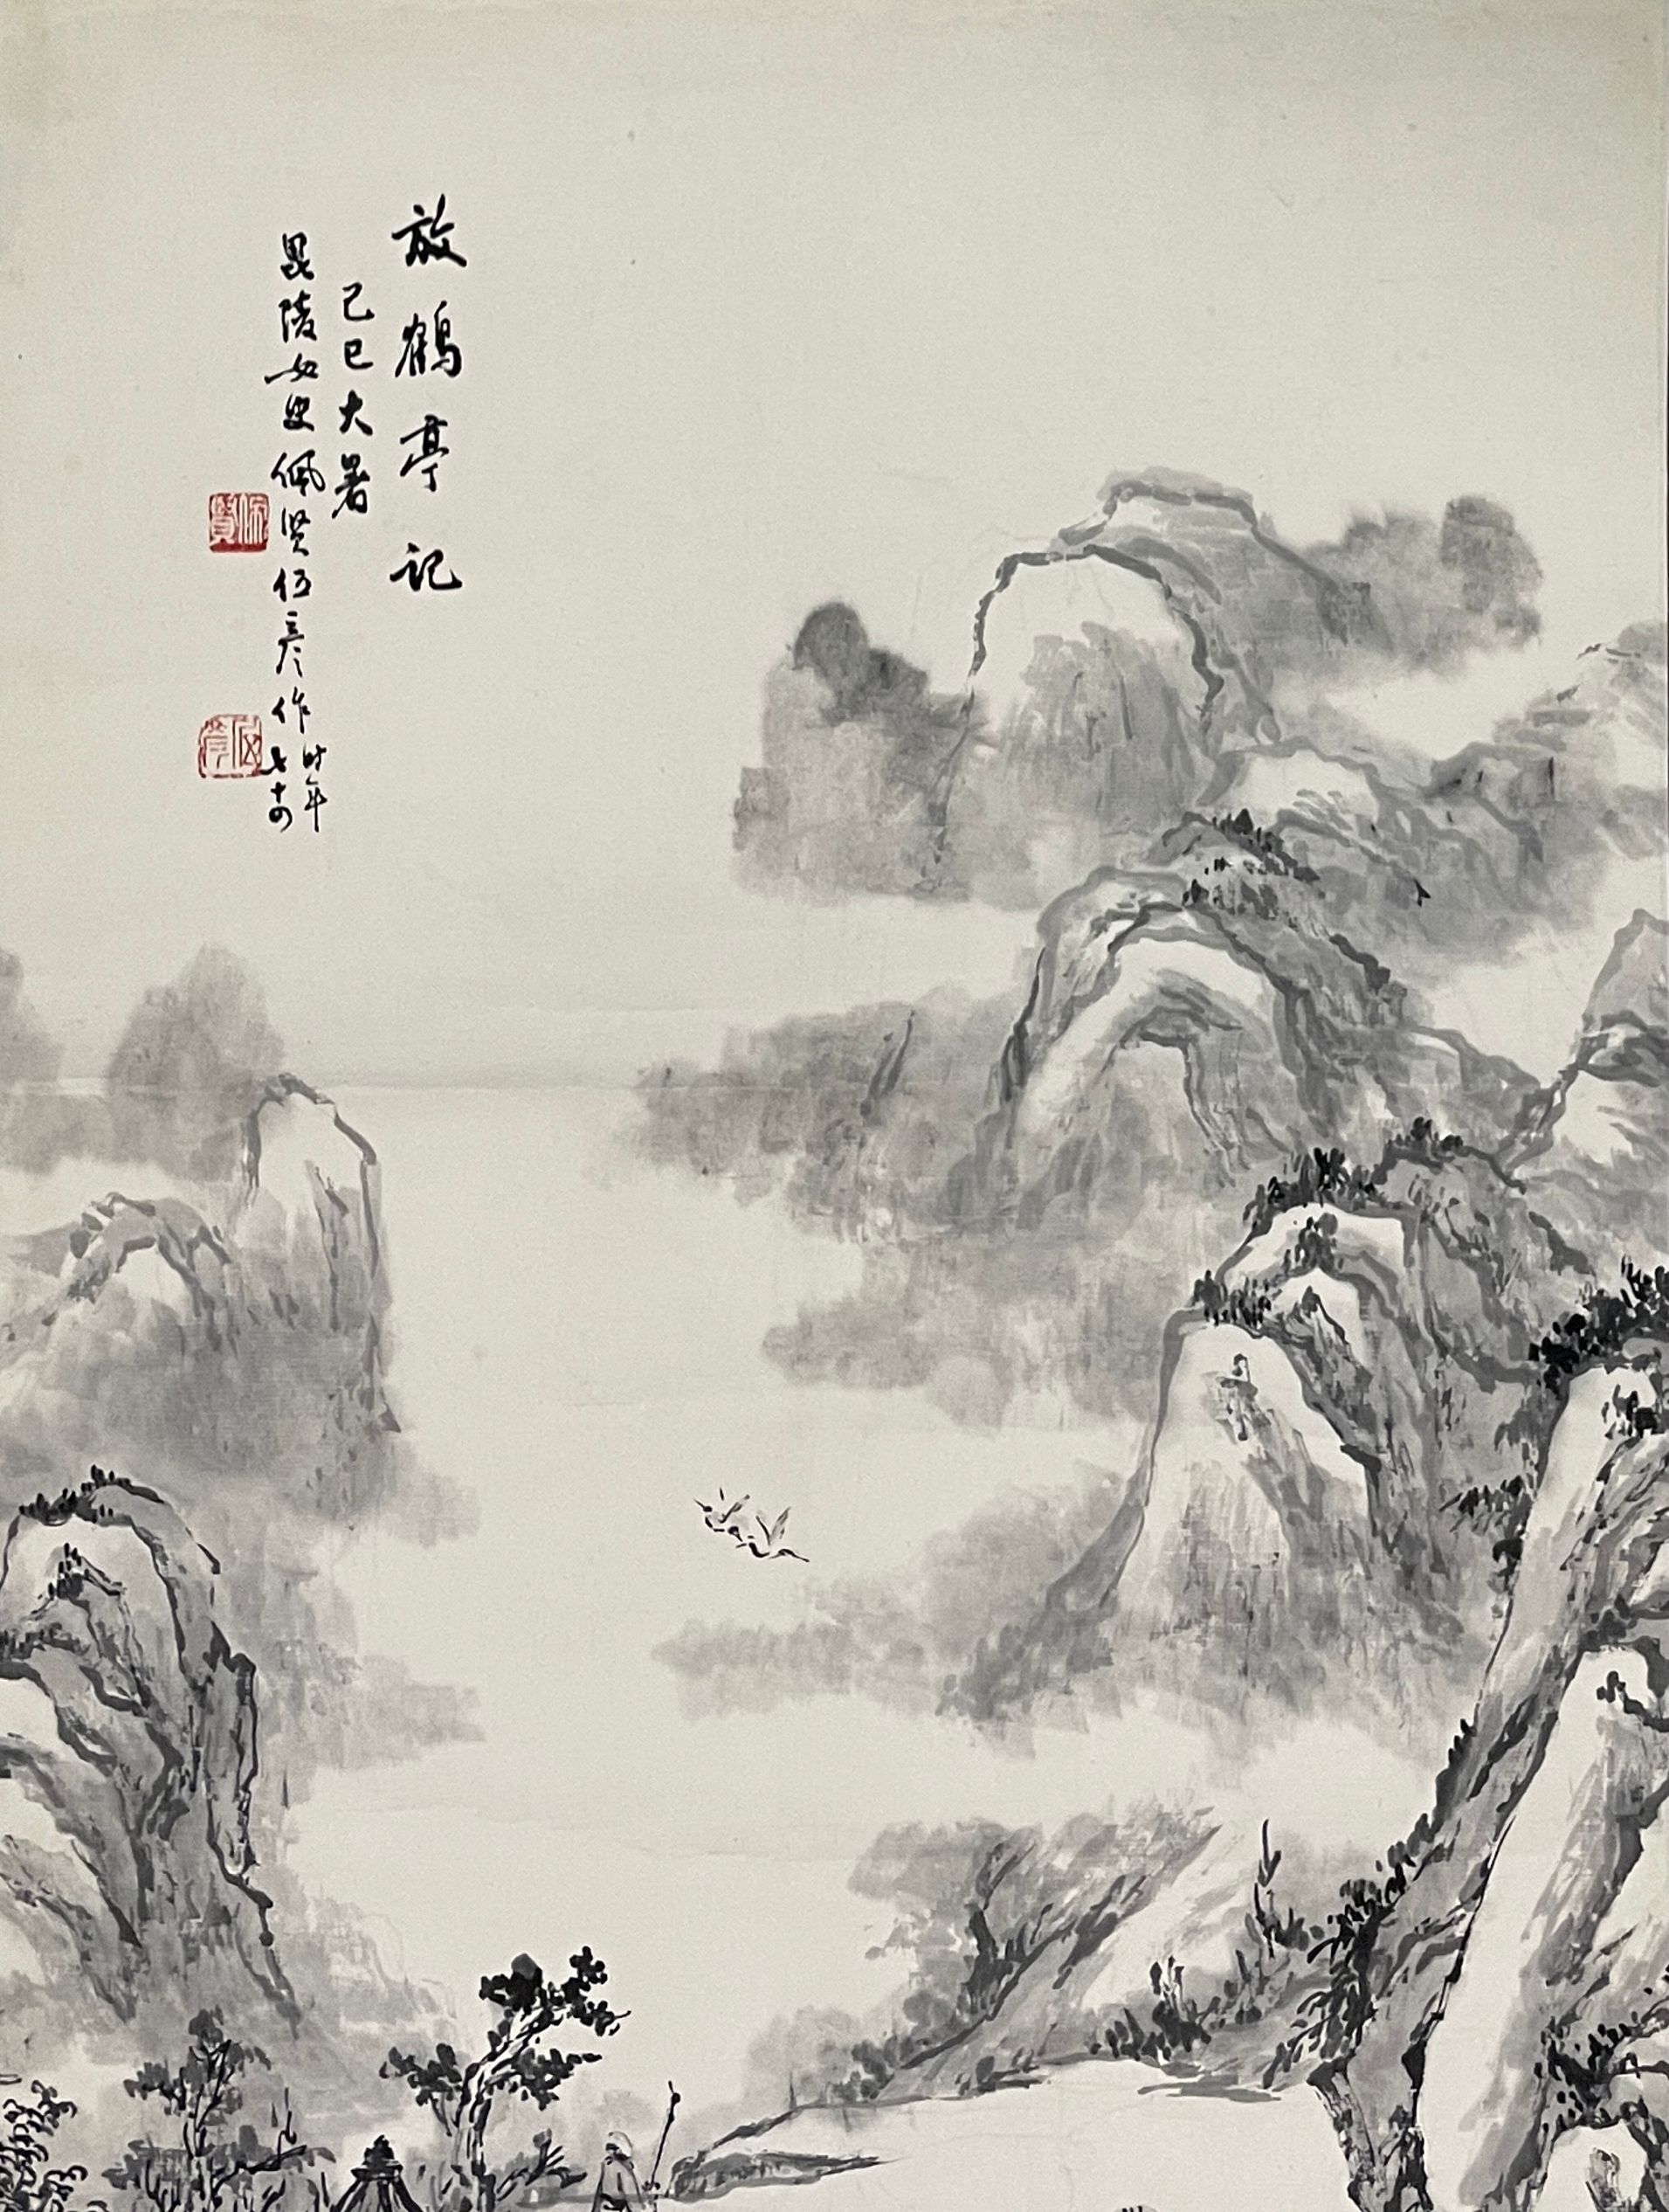 放鶴亭記
己巳大暑
毘陵女史佩贤伍彦作
时年
七十四
佩賢